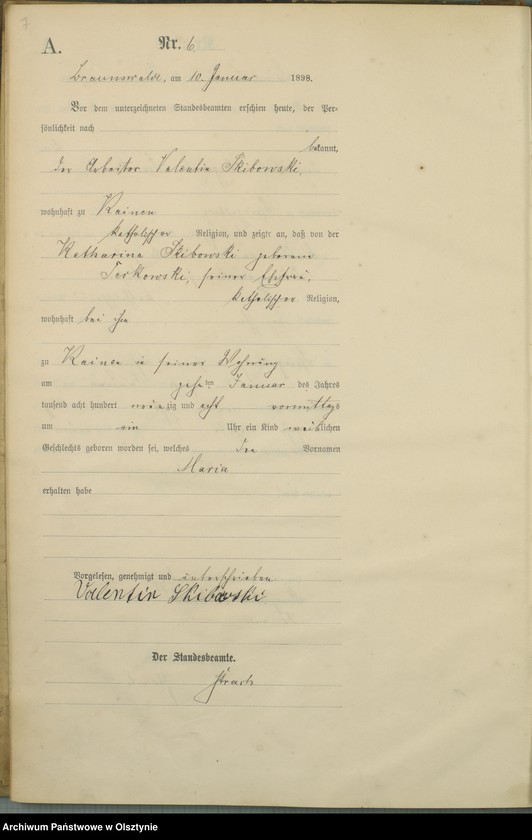 7
A. Nr. 6.
Braunswalde, am 10. Januar 1898.
Vor dem unterzeichneten Standesbeamten erschien heute, der Per=
sönlichkeit nach
bekannt,
der Arbeiter Valentin Skibowski,
wohnhaft zu
katholischer Religion, und zeigte an, daß von der
Katharina Skibowski geborenen
seiner Ehefrau,
katholischer Religion,
wohnhaft bei ihm
zu in seiner Wohnung
am zehnten Januar des Jahres
tausend acht hundert neunzig und acht vormittags
um ein Uhr ein Kind weiblichen
Geschlechts geboren worden sei, welches den Vornamen
Maria
erhalten habe
Vorgelesen, genehmigt und unterschrieben
Valentin Skibowski
Der Standesbeamte.
Archiwum Państwowe w Olsztynie